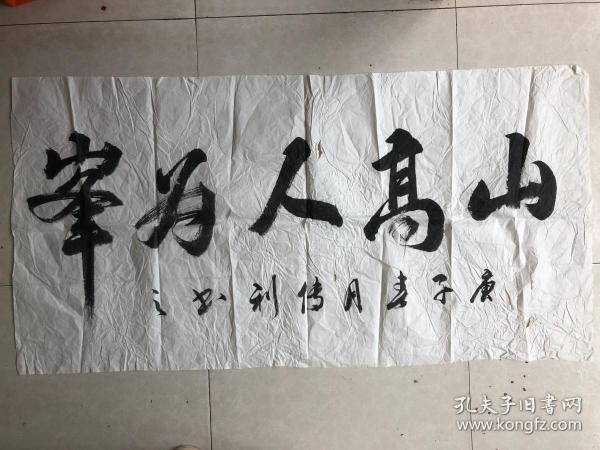 山高人为峯
庚子春月传利书之
孔夫子旧书网
www.kongfz.com